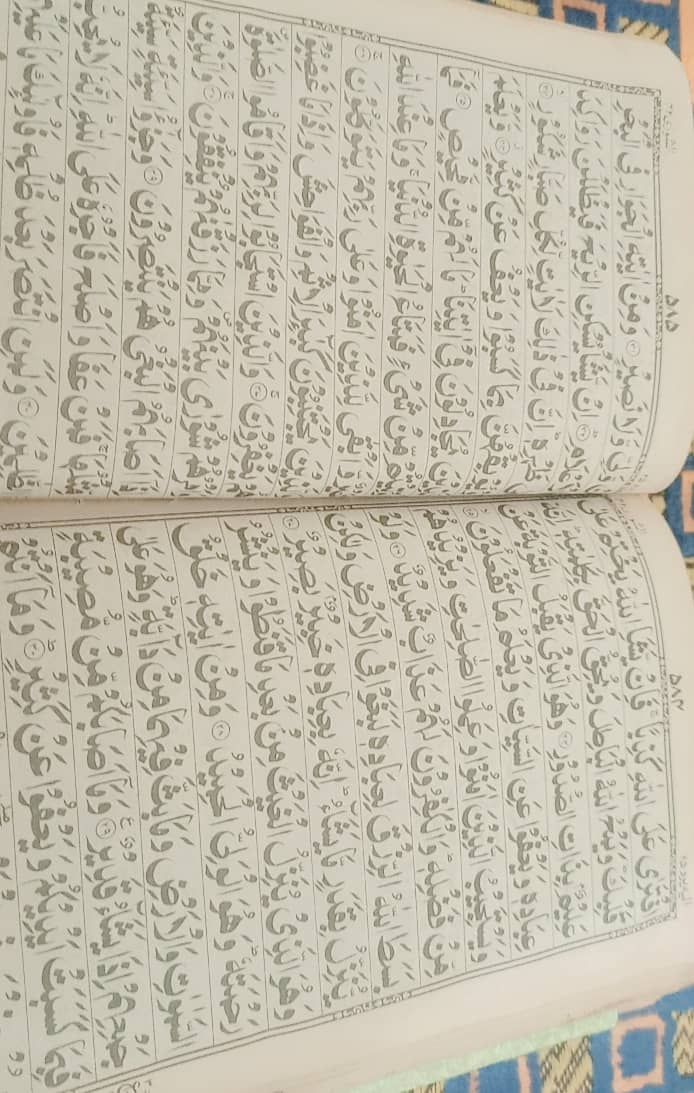 ٥٨٤
افْتَرٰى عَلَى اللّٰهِ كَذِبًا ۚ فَاِنْ يَّشَاِ اللّٰهُ يَخْتِمْ عَلٰى
قَلْبِكَ ؕ وَيَمْحُ اللّٰهُ الْبَاطِلَ وَيُحِقُّ الْحَقَّ بِكَلِمٰتِهٖ ؕ اِنَّهٗ
عَلِيْمٌۢ بِذَاتِ الصُّدُوْرِ ۝ وَهُوَ الَّذِيْ يَقْبَلُ التَّوْبَةَ عَنْ
عِبَادِهٖ وَيَعْفُوْا عَنِ السَّيِّاٰتِ وَيَعْلَمُ مَا تَفْعَلُوْنَ ۝
وَيَسْتَجِيْبُ الَّذِيْنَ اٰمَنُوْا وَعَمِلُوا الصّٰلِحٰتِ وَيَزِيْدُهُمْ
مِّنْ فَضْلِهٖ ؕ وَالْكٰفِرُوْنَ لَهُمْ عَذَابٌ شَدِيْدٌ ۝ وَلَوْ
بَسَطَ اللّٰهُ الرِّزْقَ لِعِبَادِهٖ لَبَغَوْا فِي الْاَرْضِ وَلٰكِنْ
يُّنَزِّلُ بِقَدَرٍ مَّا يَشَآءُ ؕ اِنَّهٗ بِعِبَادِهٖ خَبِيْرٌۢ بَصِيْرٌ ۝
وَهُوَ الَّذِيْ يُنَزِّلُ الْغَيْثَ مِنْۢ بَعْدِ مَا قَنَطُوْا وَيَنْشُرُ
رَحْمَتَهٗ ؕ وَهُوَ الْوَلِيُّ الْحَمِيْدُ ۝ وَمِنْ اٰيٰتِهٖ خَلْقُ
السَّمٰوٰتِ وَالْاَرْضِ وَمَا بَثَّ فِيْهِمَا مِنْ دَآبَّةٍ ؕ وَهُوَ عَلٰى
جَمْعِهِمْ اِذَا يَشَآءُ قَدِيْرٌ ۝ وَمَاۤ اَصَابَكُمْ مِّنْ مُّصِيْبَةٍ
فَبِمَا كَسَبَتْ اَيْدِيْكُمْ وَيَعْفُوْا عَنْ كَثِيْرٍ ۝ وَمَاۤ اَنْتُمْ
٥٨٥
وَّلِيٍّ وَّلَا نَصِيْرٍ ۝ وَمِنْ اٰيٰتِهِ الْجَوَارِ فِي الْبَحْرِ
كَالْاَعْلَامِ ۝ اِنْ يَّشَاْ يُسْكِنِ الرِّيْحَ فَيَظْلَلْنَ رَوَاكِدَ
عَلٰى ظَهْرِهٖ ؕ اِنَّ فِيْ ذٰلِكَ لَاٰيٰتٍ لِّكُلِّ صَبَّارٍ شَكُوْرٍ ۝
اَوْ يُوْبِقْهُنَّ بِمَا كَسَبُوْا وَيَعْفُ عَنْ كَثِيْرٍ ۝ وَّيَعْلَمَ
الَّذِيْنَ يُجَادِلُوْنَ فِيْۤ اٰيٰتِنَا ؕ مَا لَهُمْ مِّنْ مَّحِيْصٍ ۝ فَمَاۤ
اُوْتِيْتُمْ مِّنْ شَيْءٍ فَمَتَاعُ الْحَيٰوةِ الدُّنْيَا ۚ وَمَا عِنْدَ اللّٰهِ
خَيْرٌ وَّاَبْقٰى لِلَّذِيْنَ اٰمَنُوْا وَعَلٰى رَبِّهِمْ يَتَوَكَّلُوْنَ ۝
وَالَّذِيْنَ يَجْتَنِبُوْنَ كَبٰٓئِرَ الْاِثْمِ وَالْفَوَاحِشَ وَاِذَا مَا غَضِبُوْا
هُمْ يَغْفِرُوْنَ ۝ وَالَّذِيْنَ اسْتَجَابُوْا لِرَبِّهِمْ وَاَقَامُوا الصَّلٰوةَ
وَاَمْرُهُمْ شُوْرٰى بَيْنَهُمْ وَمِمَّا رَزَقْنٰهُمْ يُنْفِقُوْنَ ۝ وَالَّذِيْنَ
اِذَاۤ اَصَابَهُمُ الْبَغْيُ هُمْ يَنْتَصِرُوْنَ ۝ وَجَزٰٓؤُا سَيِّئَةٍ سَيِّئَةٌ
مِّثْلُهَا ۚ فَمَنْ عَفَا وَاَصْلَحَ فَاَجْرُهٗ عَلَى اللّٰهِ ؕ اِنَّهٗ لَا يُحِبُّ
الظّٰلِمِيْنَ ۝ وَلَمَنِ انْتَصَرَ بَعْدَ ظُلْمِهٖ فَاُولٰٓئِكَ مَا عَلَيْهِمْ